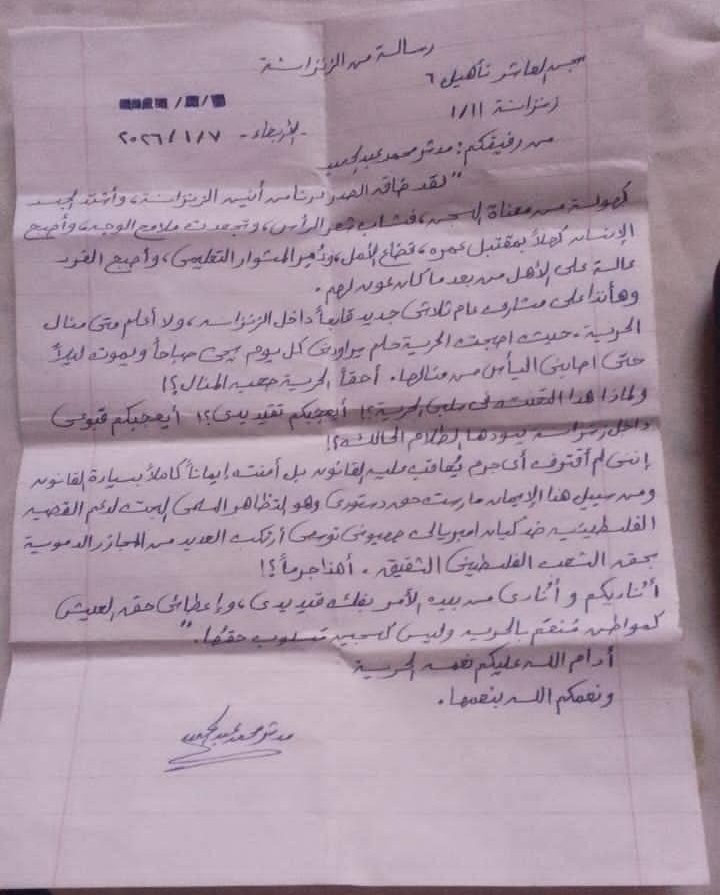 رسالة من الزنزانة
سجن العاشر تأهيل ٦
زنزانة ١/١١
- الأربعاء - ٢٠٢٦/١/٧
من رفيقكم: مدثر محمد عبدالحميد
"لقد ضاقه الصدر برتا من أنين الزنزانة، وأشتد الجسد
كهولة من معناة السجن، فشاب شعر الرأس، وتجعدت ملامح الوجه، وأصبح
الإنسان كهلاً بمقتبل عمره، فضاع الأمل، ودُمِر المشوار التعليمى، وأصبح الفرد
عالة على الأهل من بعد ما كان عون لهم.
وهأنذا على مشارف عام ثلاثى جديد قابعاً داخل الزنزانه، ولا أعلم متى منال
الحرية. حيث اصبحت الحرية حلم يراودنى كل يوم يحيى صباحاً ويموت ليلاً
حتى اصابنى اليأس من منالها. أحقاً الحرية صعبه المنال؟!
ولماذا هذا التعنت فى سلبى الحرية؟! أيعجبكم تقيد يدى؟! أيعجبكم قبوعى
داخل زنزانة يسودها الظلام الحالك؟!
إننى لم أقترف أى جرم يُعاقب عليه القانون بل أمنت إيماناً كاملاً بسيادة القانون
ومن سبيل هذا الإيمان مارست حق دستورى وهو التظاهر السلمى البحت لدعم القضيه
الفلسطينيه ضد كيان امبريالى صهيونى توسعى أرتكب العديد من المجازر الدموية
بحق الشعب الفلسطينى الشقيق. أهذا جرماً؟!
أناديكم وأنادى من بيده الأمر بفك قيد يدى، وإعطائى حق العيش
كمواطن مُنعم بالحريه وليس كسجين مسلوب حقها."
أدام الله عليكم نعمه الحرية
ونعمكم الله بنعمها.
مدثر محمد عبدالحميد